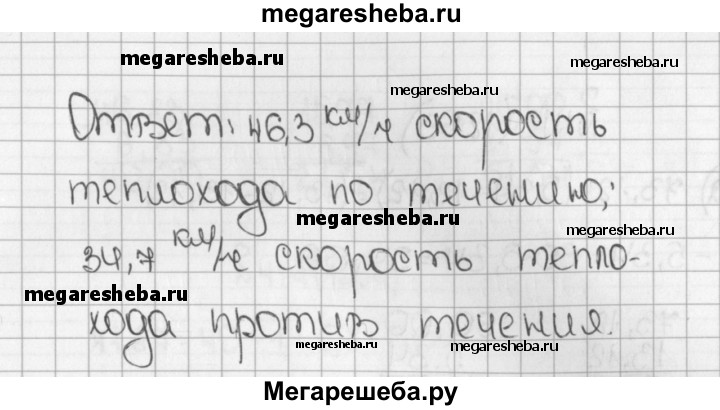 megaresheba.ru
megaresheba.ru
megaresheba.ru
megaresheba.ru
Ответ: 46,3 км/ч скорость
теплохода по течению;
megaresheba.ru
megaresheba.ru
34,7 км/ч скорость тепло-
megaresheba.ru
хода против течения.
megaresheba.ru
megaresheba.ru
Мегарешеба.ру